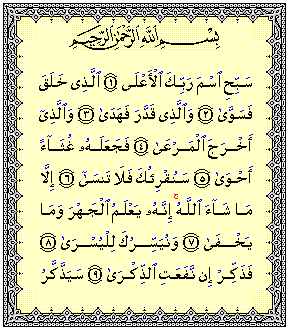 بِسْمِ ٱللَّهِ ٱلرَّحْمَٰنِ ٱلرَّحِيمِ
سَبِّحِ ٱسْمَ رَبِّكَ ٱلْأَعْلَى ﴿١﴾ ٱلَّذِى خَلَقَ
فَسَوَّىٰ ﴿٢﴾ وَٱلَّذِى قَدَّرَ فَهَدَىٰ ﴿٣﴾ وَٱلَّذِىٓ
أَخْرَجَ ٱلْمَرْعَىٰ ﴿٤﴾ فَجَعَلَهُۥ غُثَآءً
أَحْوَىٰ ﴿٥﴾ سَنُقْرِئُكَ فَلَا تَنسَىٰٓ ﴿٦﴾ إِلَّا
مَا شَآءَ ٱللَّهُ ۚ إِنَّهُۥ يَعْلَمُ ٱلْجَهْرَ وَمَا
يَخْفَىٰ ﴿٧﴾ وَنُيَسِّرُكَ لِلْيُسْرَىٰ ﴿٨﴾
فَذَكِّرْ إِن نَّفَعَتِ ٱلذِّكْرَىٰ ﴿٩﴾ سَيَذَّكَّرُ